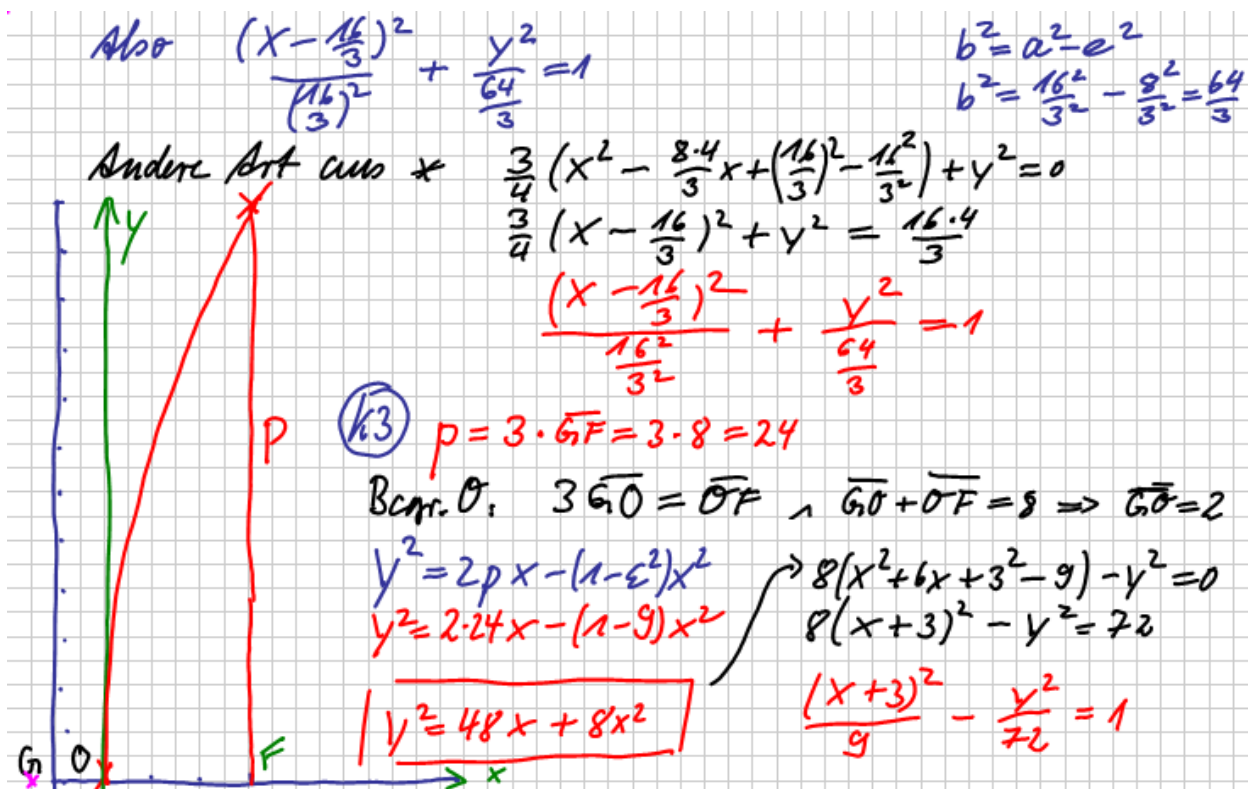 Also (x-16/3)²/(16/3)² + y²/(64/3) = 1
b² = a² - e²
b² = 16²/3² - 8²/3² = 64/3
Andere Art aus * 3/4 (x² - 8·4/3 x + (16/3)² - 16²/3²) + y² = 0
3/4 (x - 16/3)² + y² = 16·4/3
(x - 16/3)²/(16²/3²) + y²/(64/3) = 1
y
p
k3 p = 3·G̅F̅ = 3·8 = 24
O: 3 G̅O̅ = O̅F̅ ∧ G̅O̅ + O̅F̅ = 8 => G̅O̅ = 2
y² = 2px - (1-ε²)x²
y² = 2·24x - (1-9)x²
y² = 48x + 8x²
8(x² + 6x + 3² - 9) - y² = 0
8(x+3)² - y² = 72
(x+3)²/9 - y²/72 = 1
G O F x